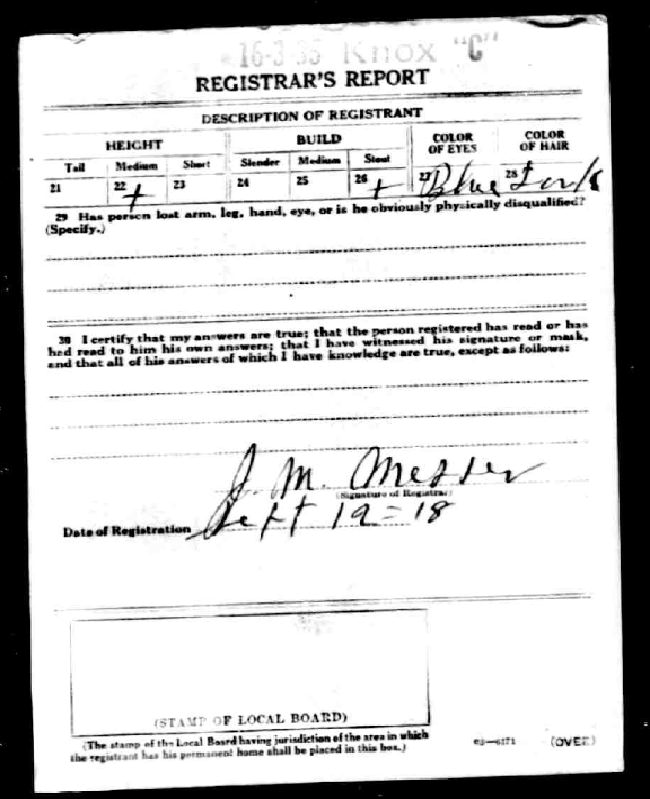 16-3-35 Knox "C"
REGISTRAR'S REPORT
DESCRIPTION OF REGISTRANT
HEIGHT BUILD COLOR OF EYES COLOR OF HAIR
Tall Medium Short Slender Medium Stout
21 22 + 23 24 25 26 + 27 Blue 28
29 Has person lost arm, leg, hand, eye, or is he obviously physically disqualified?
(Specify.)
30 I certify that my answers are true; that the person registered has read or has
had read to him his own answers; that I have witnessed his signature or mark,
and that all of his answers of which I have knowledge are true, except as follows:
J. M. Messer
(Signature of Registrar)
Date of Registration Sept 12 = 18
(STAMP OF LOCAL BOARD)
(The stamp of the Local Board having jurisdiction of the area in which
the registrant has his permanent home shall be placed in this box.)
03—6171 (OVER)